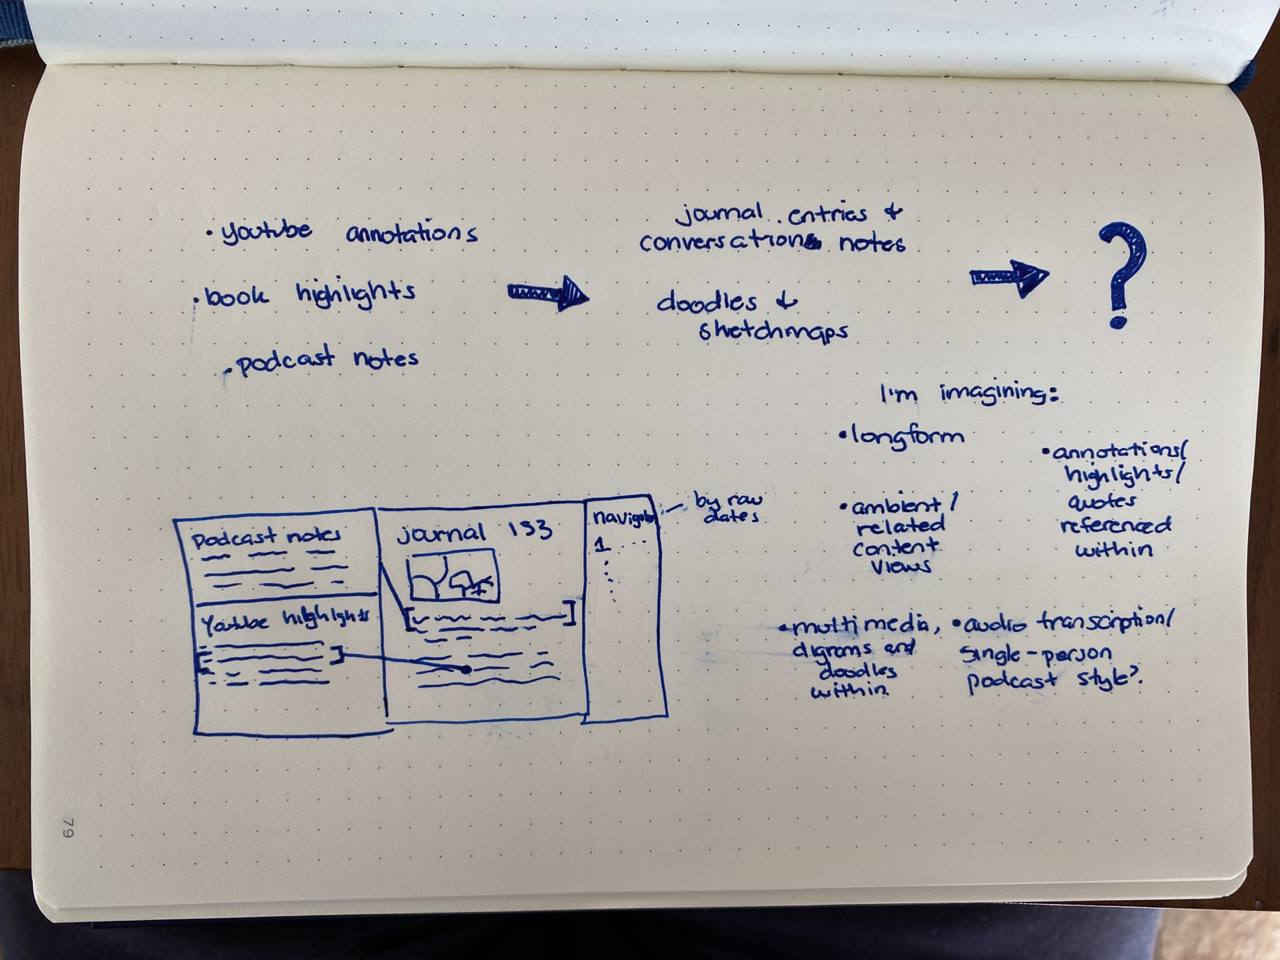 • youtube annotations
• book highlights
• podcast notes
journal entries &
conversation notes
doodles &
sketchmaps
?
I'm imagining:
• longform
• ambient/
related
content
views
• annotations/
highlights/
quotes
referenced
within
• multimedia,
digrams and
doodles
within
• audio transcription/
single-person
podcast style?
Podcast notes
Youtube highlights
journal 153
navigator
1
by raw
dates
79